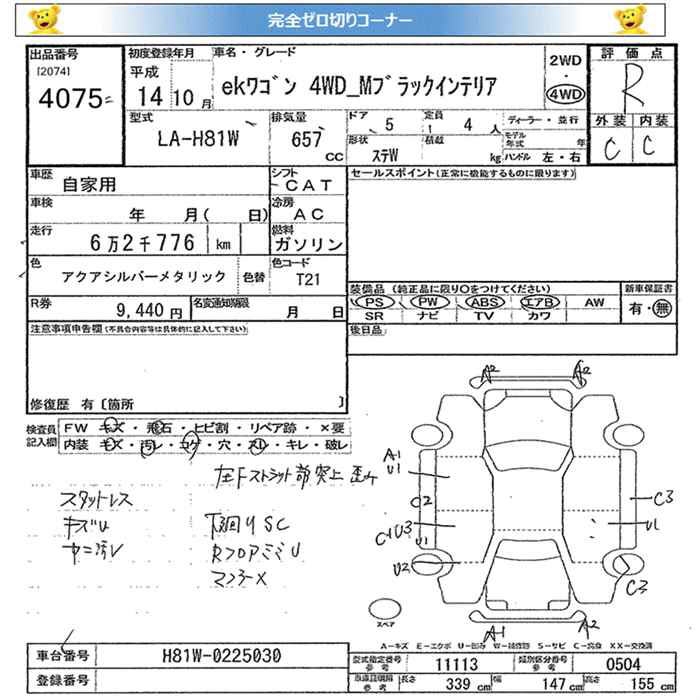 完全ゼロ切りコーナー
出品番号 初度登録年月 車名・グレード 2WD 評価点
[2074] 平成 ekワゴン 4WD_Mブラックインテリア ・ R
4075 14年10月 4WD
型式 排気量 ドア 5 定員 4人 ディーラー・並行 外装 内装
LA-H81W 657 CC 形状 ステW 積載 kg モデル年式 年 C C
ハンドル 左・右
車歴 自家用 シフト CAT セールスポイント(正常に機能するものに限ります)
車検 年 月( 日) 冷房 AC
走行 6万2千776 km 燃料 ガソリン
色 アクアシルバーメタリック 色替 色コード T21
装備品 (純正品に限り○をつけてください) 新車保証書
R券 9,440円 名変通知期限 月 日 PS PW ABS エアB AW 有・無
SR ナビ TV カワ
注意事項申告欄(不具合内容等は具体的に記入して下さい) 後日品
修復歴 有〔箇所 〕
検査員 FW キズ・飛石・トビ割・リペア跡・×要
記入欄 内装 キズ・汚レ・コゲ・穴・スレ・キレ・破レ
左Fストラット部突上歪ミ
スタットレス
キズU 下回りSC
ヤニ汚レ RフロアミミU
マフラーX
A2 A2
A1
U1
C2 C3
C1U3 U1
U1
U2
C3
スペア
A1 A2
A-キズ E-エクボ U-凹み W-補修跡 S-サビ C-腐食 XX-交換済
車台番号 H81W-0225030 型式指定番号 参考 11113 類別区分番号 参考 0504
登録番号 長さ 339cm 幅 147cm 高さ 155cm